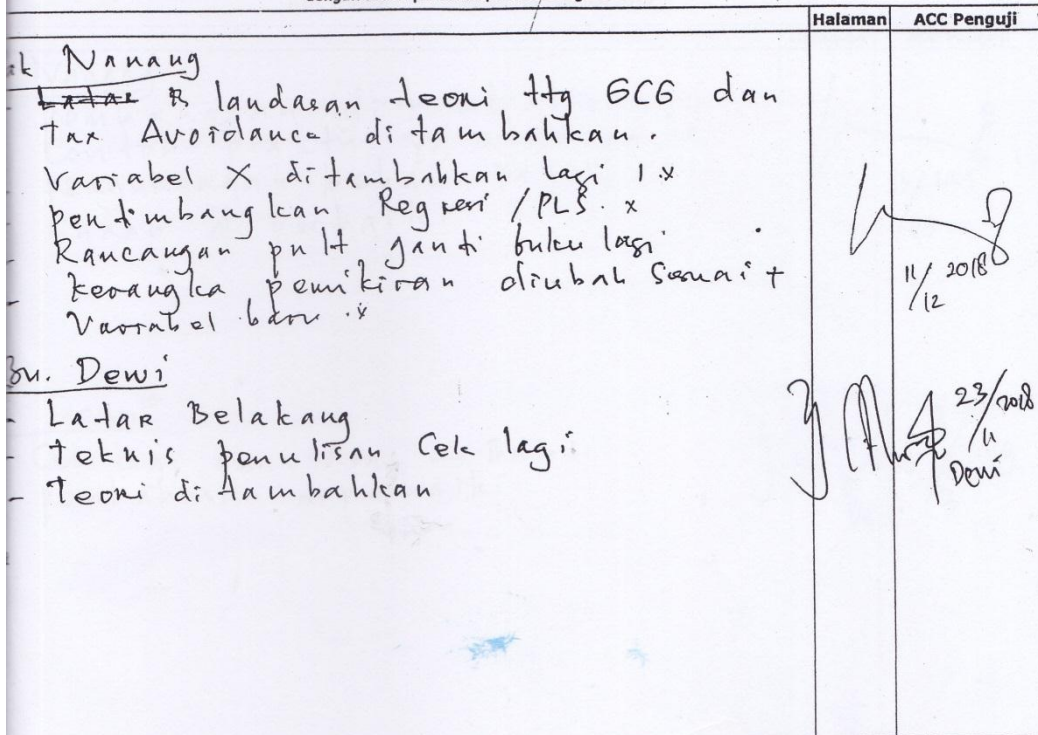 Halaman ACC Penguji
ak Nanang
Latar B landasan teori ttg GCG dan
Tax Avoidance di tambahkan.
Variabel X ditambahkan lagi 1 x
pertimbangkan Regresi / PLS. x
Rancangan pnlt ganti buku lagi
kerangka pemikiran diubah sesuai +
Variabel baru. x
11/12 2018
Bu. Dewi
- Latar Belakang
- teknis penulisan Cek lagi
- Teori di tambahkan
23/11 2018
Dewi